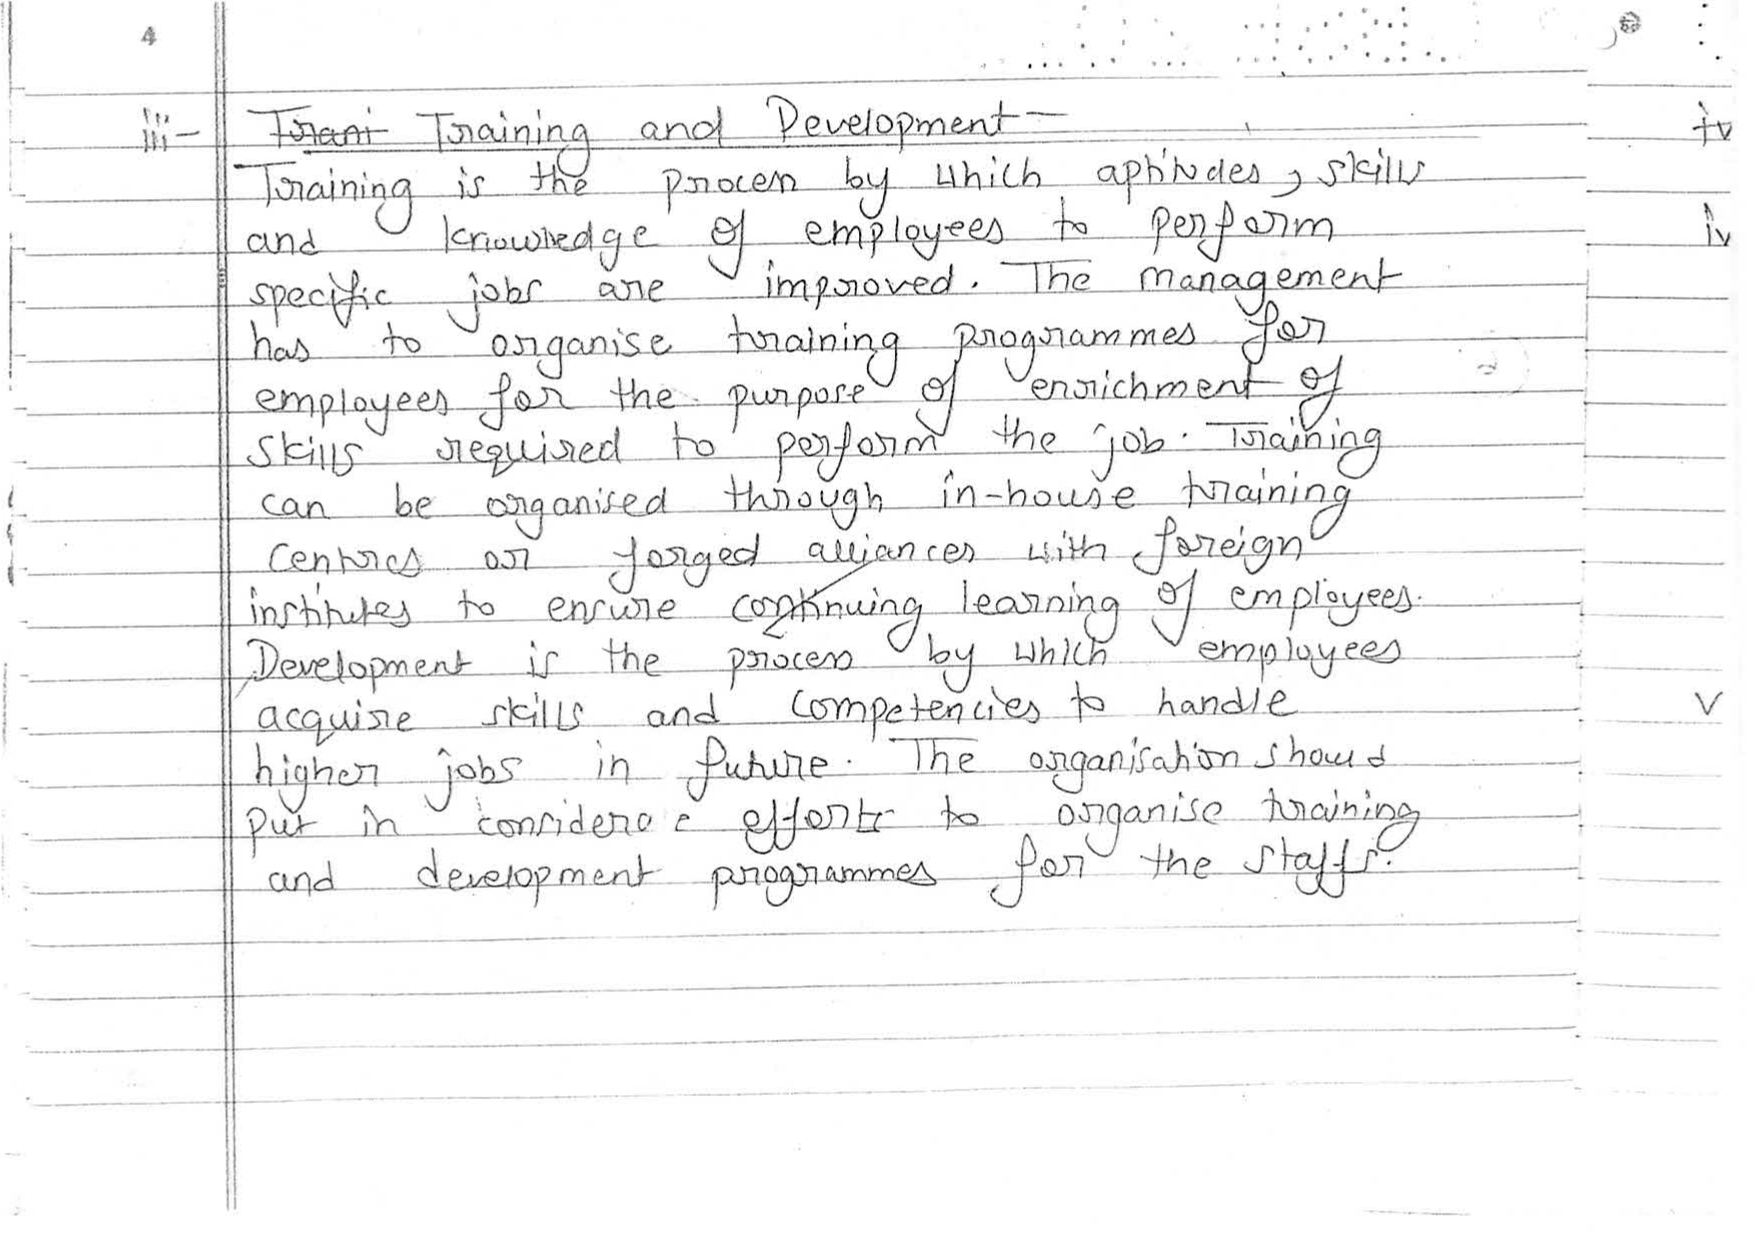 4
iii- Trani Training and Development-
Training is the process by which aptitudes, skills
and knowledge of employees to perform
specific jobs are improved. The management
has to organise training programmes for
employees for the purpose of enrichment of
skills required to perform the job. Training
can be organised through in-house training
centres or forged alliances with foreign
institutes to ensure continuing learning of employees.
Development is the process by which employees
acquire skills and competencies to handle
higher jobs in future. The organisation should
put in efforts to organise training
and development programmes for the staffs.
iv
iv
v